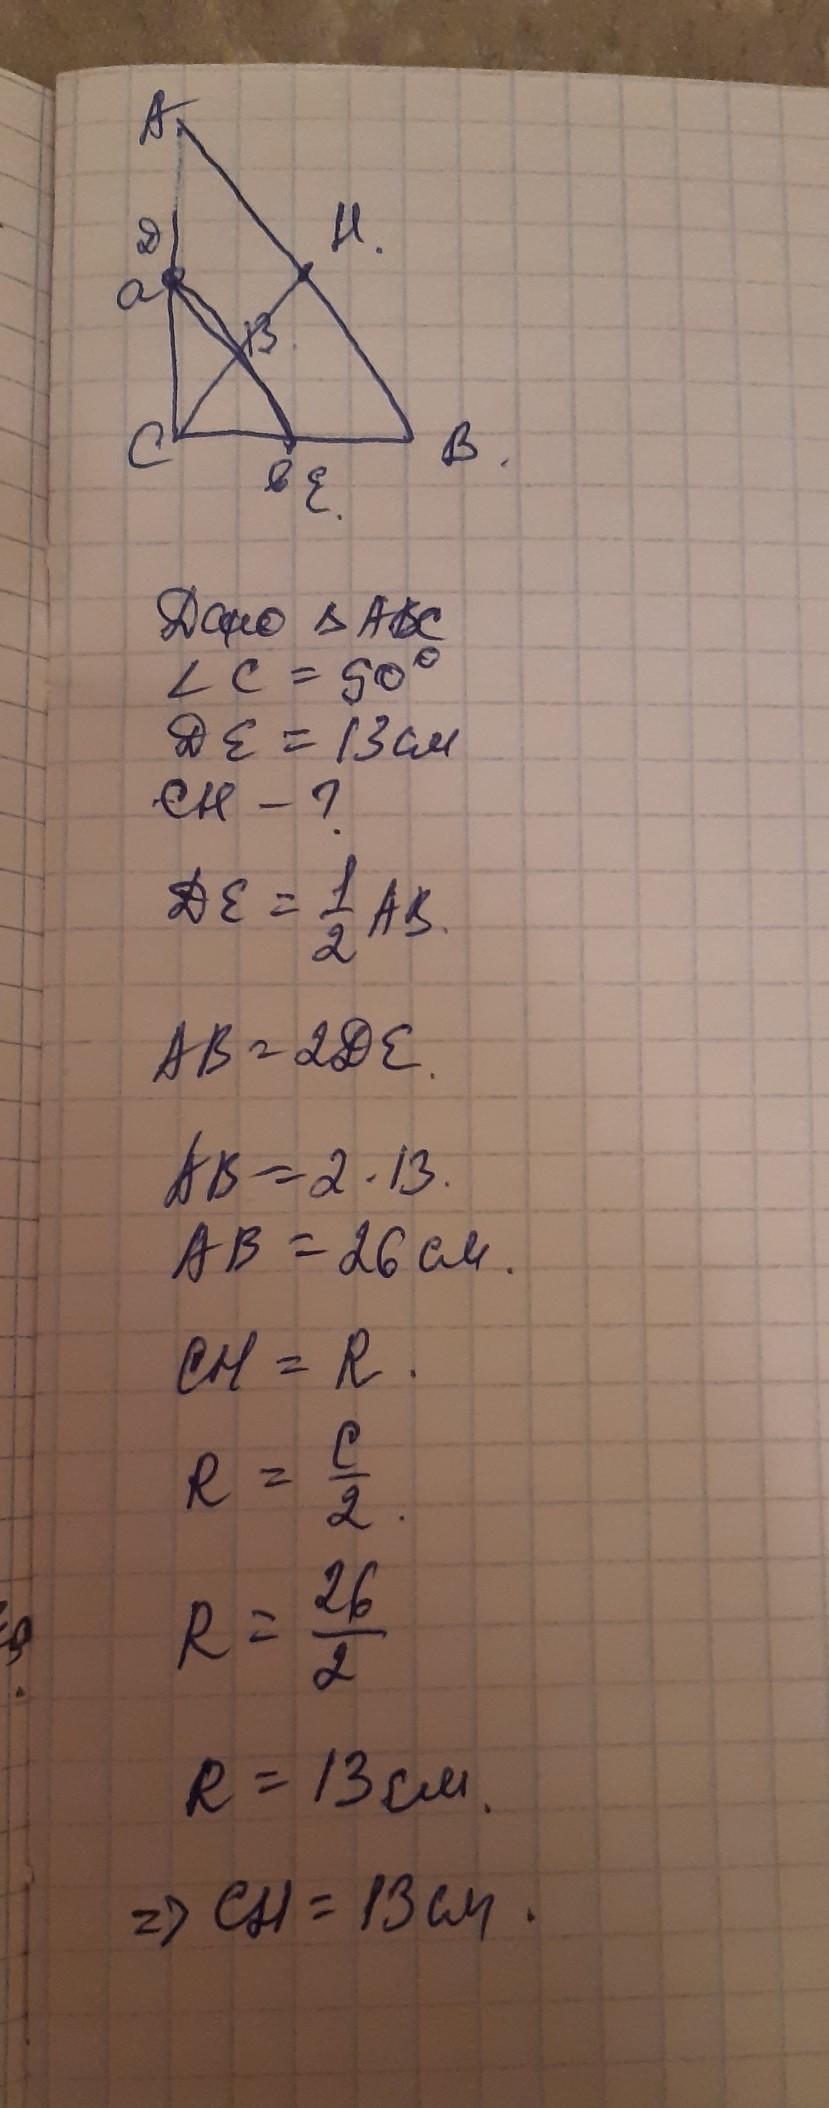 А
D
H.
а
В.
С
В.
в ε.
Дано Δ ABC
∠ C = 90°
DE = 13 см
CH - ?
DE = 1/2 AB.
AB = 2DE.
AB = 2 · 13.
AB = 26 см.
CH = R.
R = c/2.
R = 26/2
R = 13 см.
=> CH = 13 см.